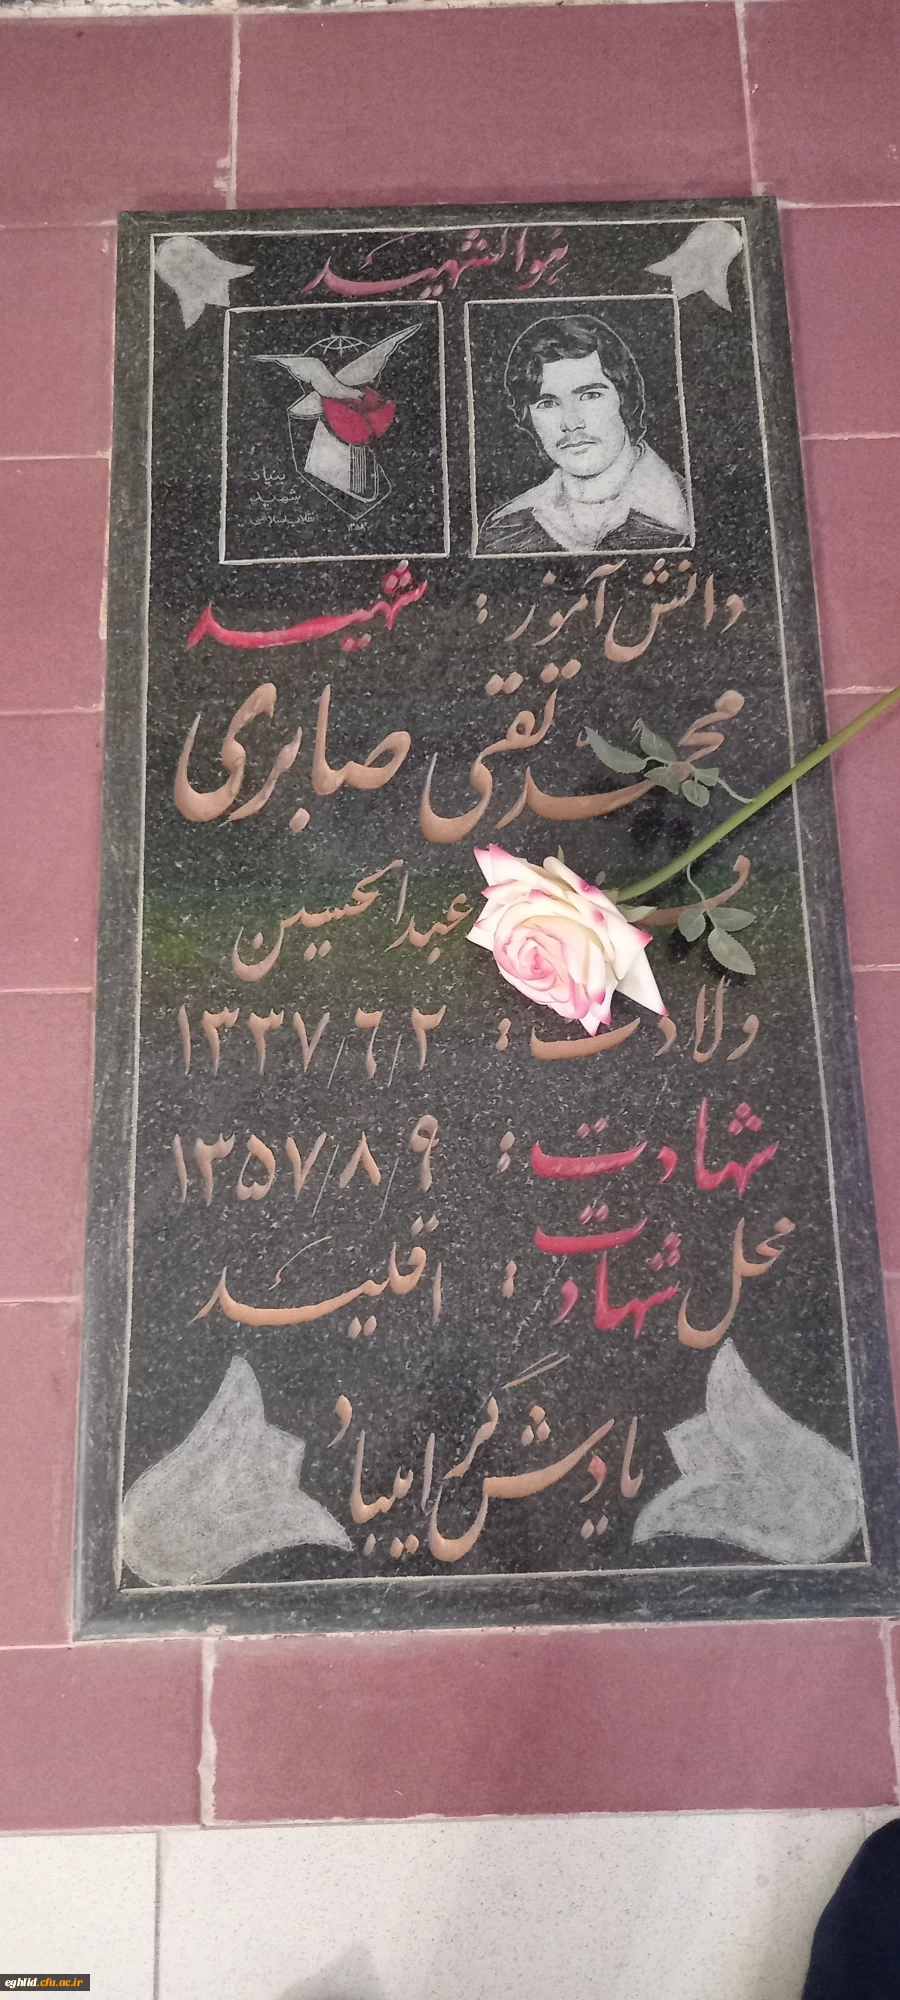 هوالشهید
بنیاد
شهید
انقلاب اسلامی
۱۳۵۸
دانش آموز : شهید
محمد تقی صابری
عبدالحسین
ولادت : ۱۳۳۷/۶/۲
شهادت : ۱۳۵۷/۸/۹
محل شهادت : اقلید
یادش گرامیباد
eghlid.cfu.ac.ir